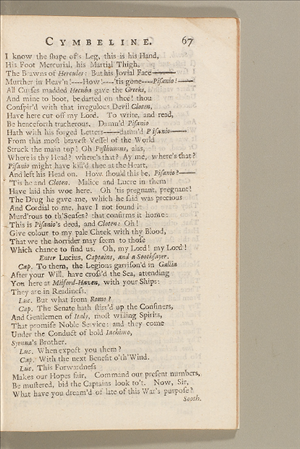 CYMBELINE. 67
I know the shape of's Leg, this is his Hand,
His Foot Mercurial, his Martial Thigh,
The Brawns of Hercules: But his Jovial Face———
Murther in Heav'n!——How!——'tis gone——Pisanio!——
All Curses madded Hecuba gave the Greeks,
And mine to boot, be darted on thee! thou
Conspir'd with that irregulous Devil Cloten,
Have here cut off my Lord. To write, and read,
Be henceforth treacherous. Damn'd Pisanio
Hath with his forged Letters——damn'd Pisanio——
From this most bravest Vessel of the World
Struck the main top! Oh Posthumus, alas,
Where is thy Head? where's that? Ay me, where's that?
Pisanio might have kill'd thee at the Heart,
And left his Head on. How should this be, Pisanio?——
'Tis he and Cloten. Malice and Lucre in them
Have laid this woe here. Oh 'tis pregnant, pregnant!
The Drug he gave me, which he said was precious
And Cordial to me, have I not found it
Murd'rous to th'Senses? that confirms it home:
This is Pisanio's deed, and Cloten: Oh!
Give colour to my pale Cheek with thy Blood,
That we the horrider may seem to those
Which chance to find us. Oh, my Lord! my Lord!
Enter Lucius, Captains, and a Soothsayer.
Cap. To them, the Legions garrison'd in Gallia
After your Will, have cross'd the Sea, attending
You here at Milford-Haven, with your Ships:
They are in Readiness.
Luc. But what from Rome?
Cap. The Senate hath stirr'd up the Confiners,
And Gentlemen of Italy, most willing Spirits,
That promise Noble Service: and they come
Under the Conduct of bold Iachimo,
Syenna's Brother.
Luc. When expect you them?
Cap. With the next Benefit o'th'Wind.
Luc. This Forwardness
Makes our Hopes fair. Command our present numbers,
Be mustered, bid the Captains look to't. Now, Sir,
What have you dream'd of late of this War's purpose?
Sooth.